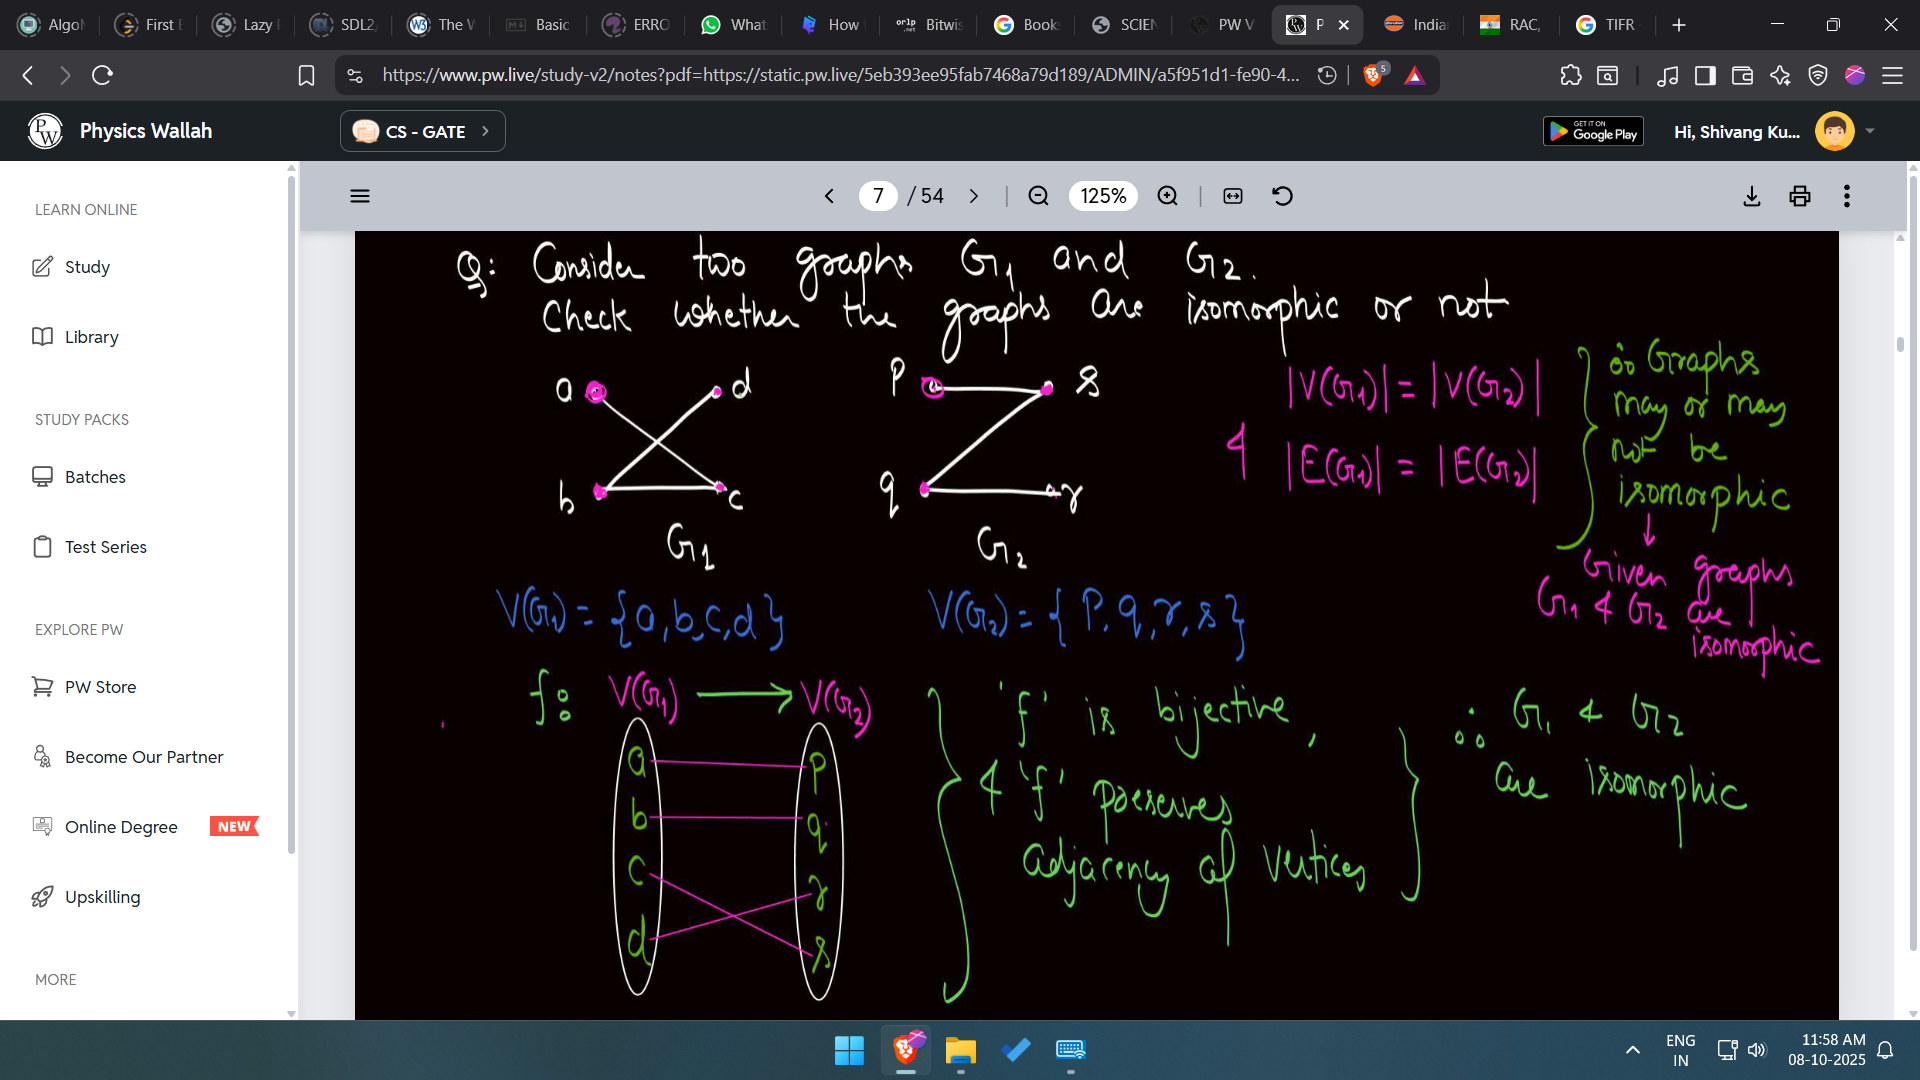 AlgoM
First E
Lazy F
SDL2,
The W
Basic
ERRO
What
How
Bitwis
Book
SCIEN
PW V
P
India
RAC,
TIFR
https://www.pw.live/study-v2/notes?pdf=https://static.pw.live/5eb393ee95fab7468a79d189/ADMIN/a5f951d1-fe90-4...
5
Physics Wallah
CS - GATE
GET IT ON
Google Play
Hi, Shivang Ku...
LEARN ONLINE
Study
Library
STUDY PACKS
Batches
Test Series
EXPLORE PW
PW Store
Become Our Partner
Online Degree NEW
Upskilling
MORE
7 / 54
125%
Q: Consider two graphs G1 and G2.
Check whether the graphs are isomorphic or not
a d
b c
G1
p s
q r
G2
|V(G1)| = |V(G2)|
& |E(G1)| = |E(G2)|
∴ Graphs
may or may
not be
isomorphic
↓
Given graphs
G1 & G2 are
isomorphic
V(G1) = {a, b, c, d}
V(G2) = {P, q, r, s}
f: V(G1) → V(G2)
a p
b q
c r
d s
'f' is bijective,
& 'f' preserves
adjacency of vertices
∴ G1 & G2
are isomorphic
ENG
IN
11:58 AM
08-10-2025